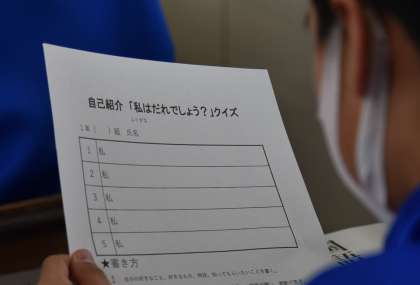 自己紹介「私はだれでしょう？」クイズ
1年( )組 氏名
1 私
2 私
3 私
4 私
5 私
★書き方